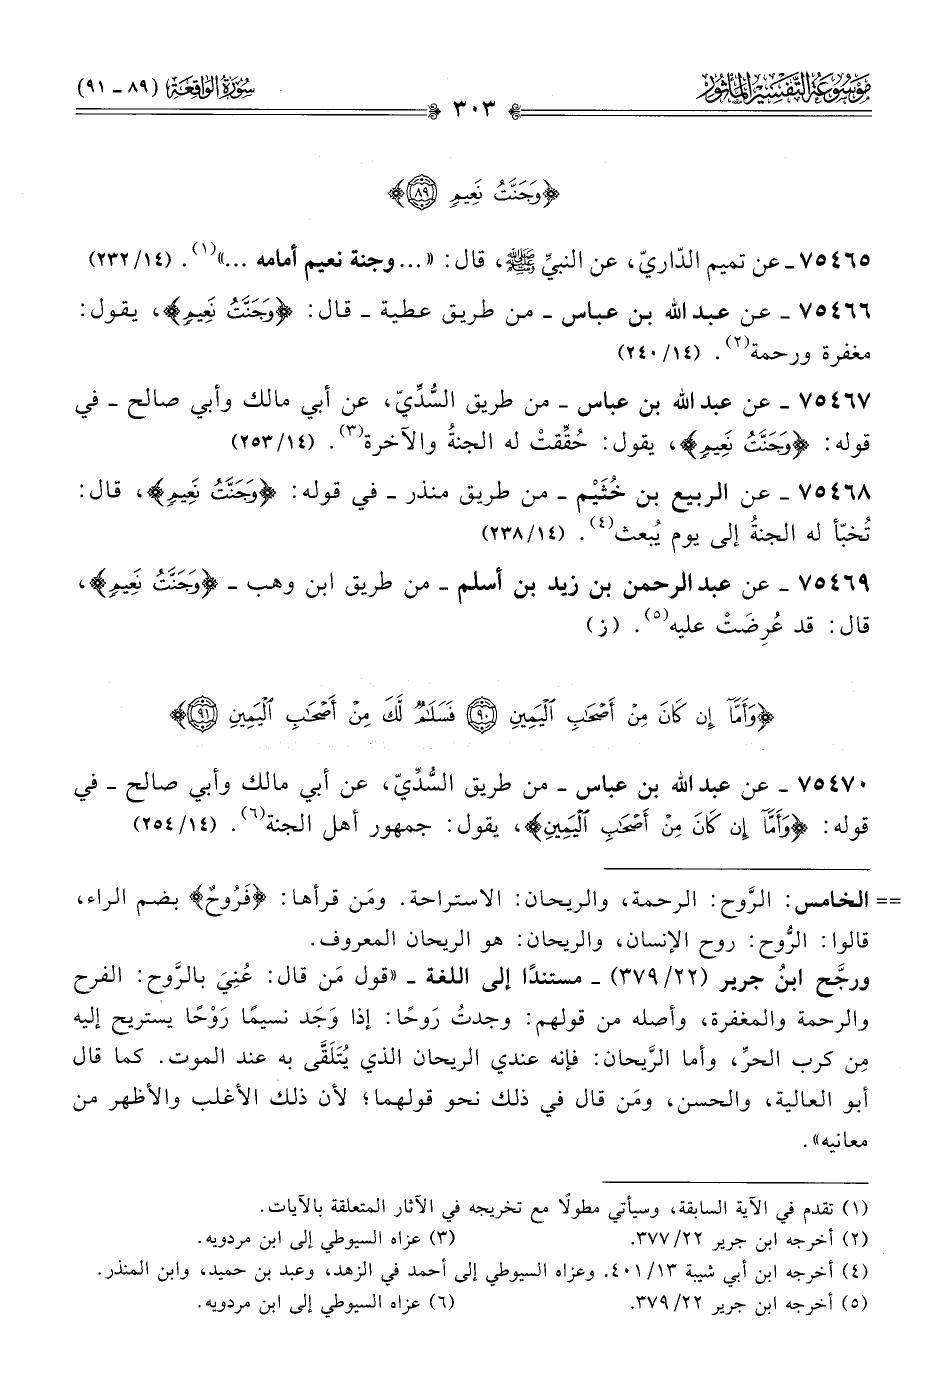 مَوْسُوعَةُ التَّفْسِيْرِ المَأْثُورِ
سُورَةُ الوَاقِعَة (٨٩ - ٩١)
٣٠٣
﴿وَجَنَّتُ نَعِيمٍ ٨٩﴾
٧٥٤٦٥ - عن تميم الدّاريّ، عن النبيِّ ﷺ، قال: «... وجنة نعيم أمامه ...»(١). (١٤/٢٣٢)
٧٥٤٦٦ - عن عبد الله بن عباس - من طريق عطية - قال: ﴿وَجَنَّتُ نَعِيمٍ﴾، يقول:
مغفرة ورحمة(٢). (١٤/٢٤٠)
٧٥٤٦٧ - عن عبد الله بن عباس - من طريق السُّدِّيّ، عن أبي مالك وأبي صالح - في
قوله: ﴿وَجَنَّتُ نَعِيمٍ﴾، يقول: حُقِّقتْ له الجنةُ والآخرة(٣). (١٤/٢٥٣)
٧٥٤٦٨ - عن الربيع بن خُثَيْم - من طريق منذر - في قوله: ﴿وَجَنَّتُ نَعِيمٍ﴾، قال:
تُخبّأ له الجنةُ إلى يوم يُبعث(٤). (١٤/٢٣٨)
٧٥٤٦٩ - عن عبد الرحمن بن زيد بن أسلم - من طريق ابن وهب - ﴿وَجَنَّتُ نَعِيمٍ﴾،
قال: قد عُرِضَتْ عليه(٥). (ز)
﴿وَأَمَّآ إِن كَانَ مِنْ أَصْحَٰبِ ٱلْيَمِينِ ٩٠ فَسَلَٰمٌ لَّكَ مِنْ أَصْحَٰبِ ٱلْيَمِينِ ٩١﴾
٧٥٤٧٠ - عن عبد الله بن عباس - من طريق السُّدِّيّ، عن أبي مالك وأبي صالح - في
قوله: ﴿وَأَمَّآ إِن كَانَ مِنْ أَصْحَٰبِ ٱلْيَمِينِ﴾، يقول: جمهور أهل الجنة(٦). (١٤/٢٥٤)
== الخامس: الرَّوح: الرحمة، والريحان: الاستراحة. ومَن قرأها: ﴿فَرُوحٌ﴾ بضم الراء،
قالوا: الرُّوح: روح الإنسان، والريحان: هو الريحان المعروف.
ورجَّح ابنُ جرير (٢٢/٣٧٩) - مستندًا إلى اللغة - «قول مَن قال: عُنِيَ بالرَّوح: الفرح
والرحمة والمغفرة، وأصله من قولهم: وجدتُ رَوحًا: إذا وَجَد نسيمًا رَوْحًا يستريح إليه
مِن كرب الحرِّ، وأما الرَّيحان: فإنه عندي الريحان الذي يُتَلَقَّى به عند الموت. كما قال
أبو العالية، والحسن، ومَن قال في ذلك نحو قولهما؛ لأن ذلك الأغلب والأظهر من
معانيه».
(١) تقدم في الآية السابقة، وسيأتي مطولًا مع تخريجه في الآثار المتعلقة بالآيات.
(٢) أخرجه ابن جرير ٢٢/٣٧٧. (٣) عزاه السيوطي إلى ابن مردويه.
(٤) أخرجه ابن أبي شيبة ١٣/٤٠١. وعزاه السيوطي إلى أحمد في الزهد، وعبد بن حميد، وابن المنذر.
(٥) أخرجه ابن جرير ٢٢/٣٧٩. (٦) عزاه السيوطي إلى ابن مردويه.